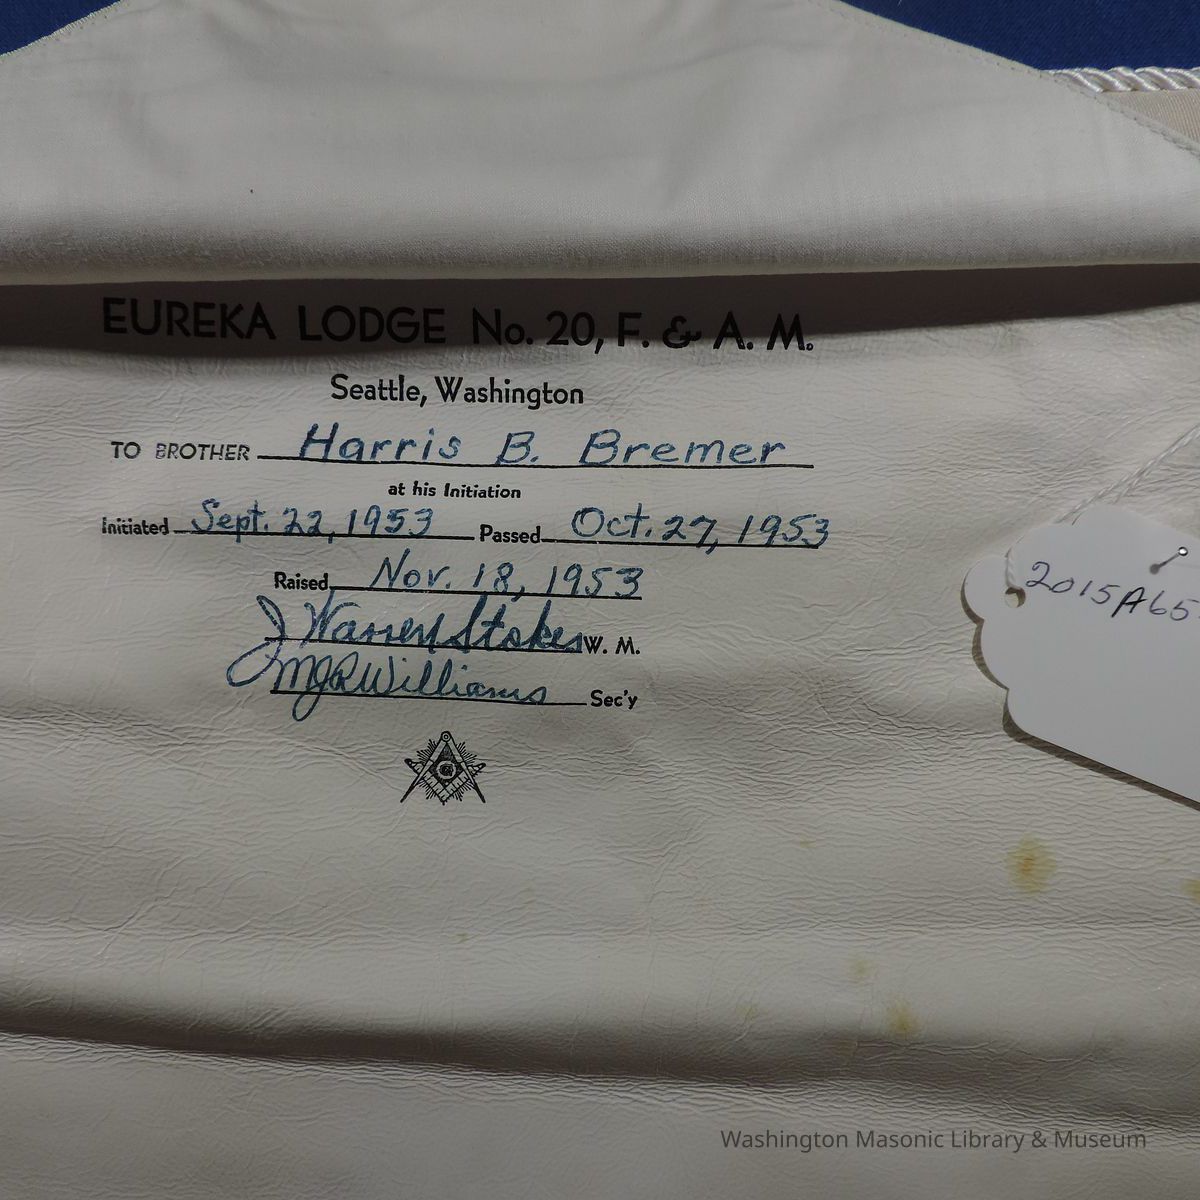 EUREKA LODGE No. 20, F. & A. M.
Seattle, Washington
TO BROTHER Harris B. Bremer
at his Initiation
Initiated Sept. 22, 1953 Passed Oct. 27, 1953
Raised Nov. 18, 1953
J Warren Stokes W. M.
Williams Sec'y
G
2015A65
Washington Masonic Library & Museum